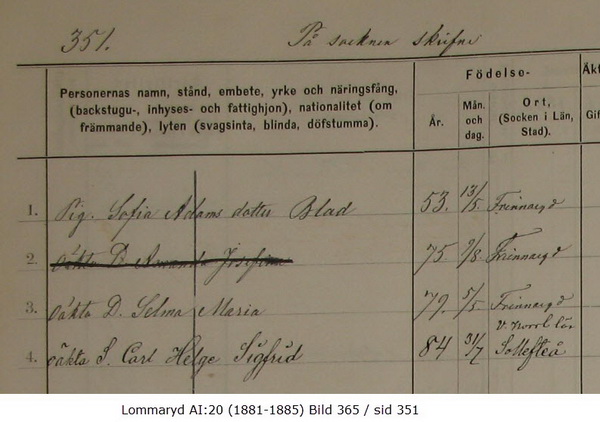 351.
På socknen skrifne
Personernas namn, stånd, embete, yrke och näringsfång, (backstugu-, inhyses- och fattighjon), nationalitet (om främmande), lyten (svagsinta, blinda, döfstumma).
Födelse-
År.
Mån. och dag.
Ort, (Socken i Län, Stad).
Akt
Gif
1. Pig. Sofia Adams dotter Blad 53. 13/5. Frinnaryd
2. oäkta D. Amanda Josefina 75 9/8. Frinnaryd
3. oäkta D. Selma Maria 79. 5/5 Frinnaryd
V. Norrl län
4. oäkta S. Carl Helge Sigfrid 84 31/7 Sollefteå
Lommaryd AI:20 (1881-1885) Bild 365 / sid 351